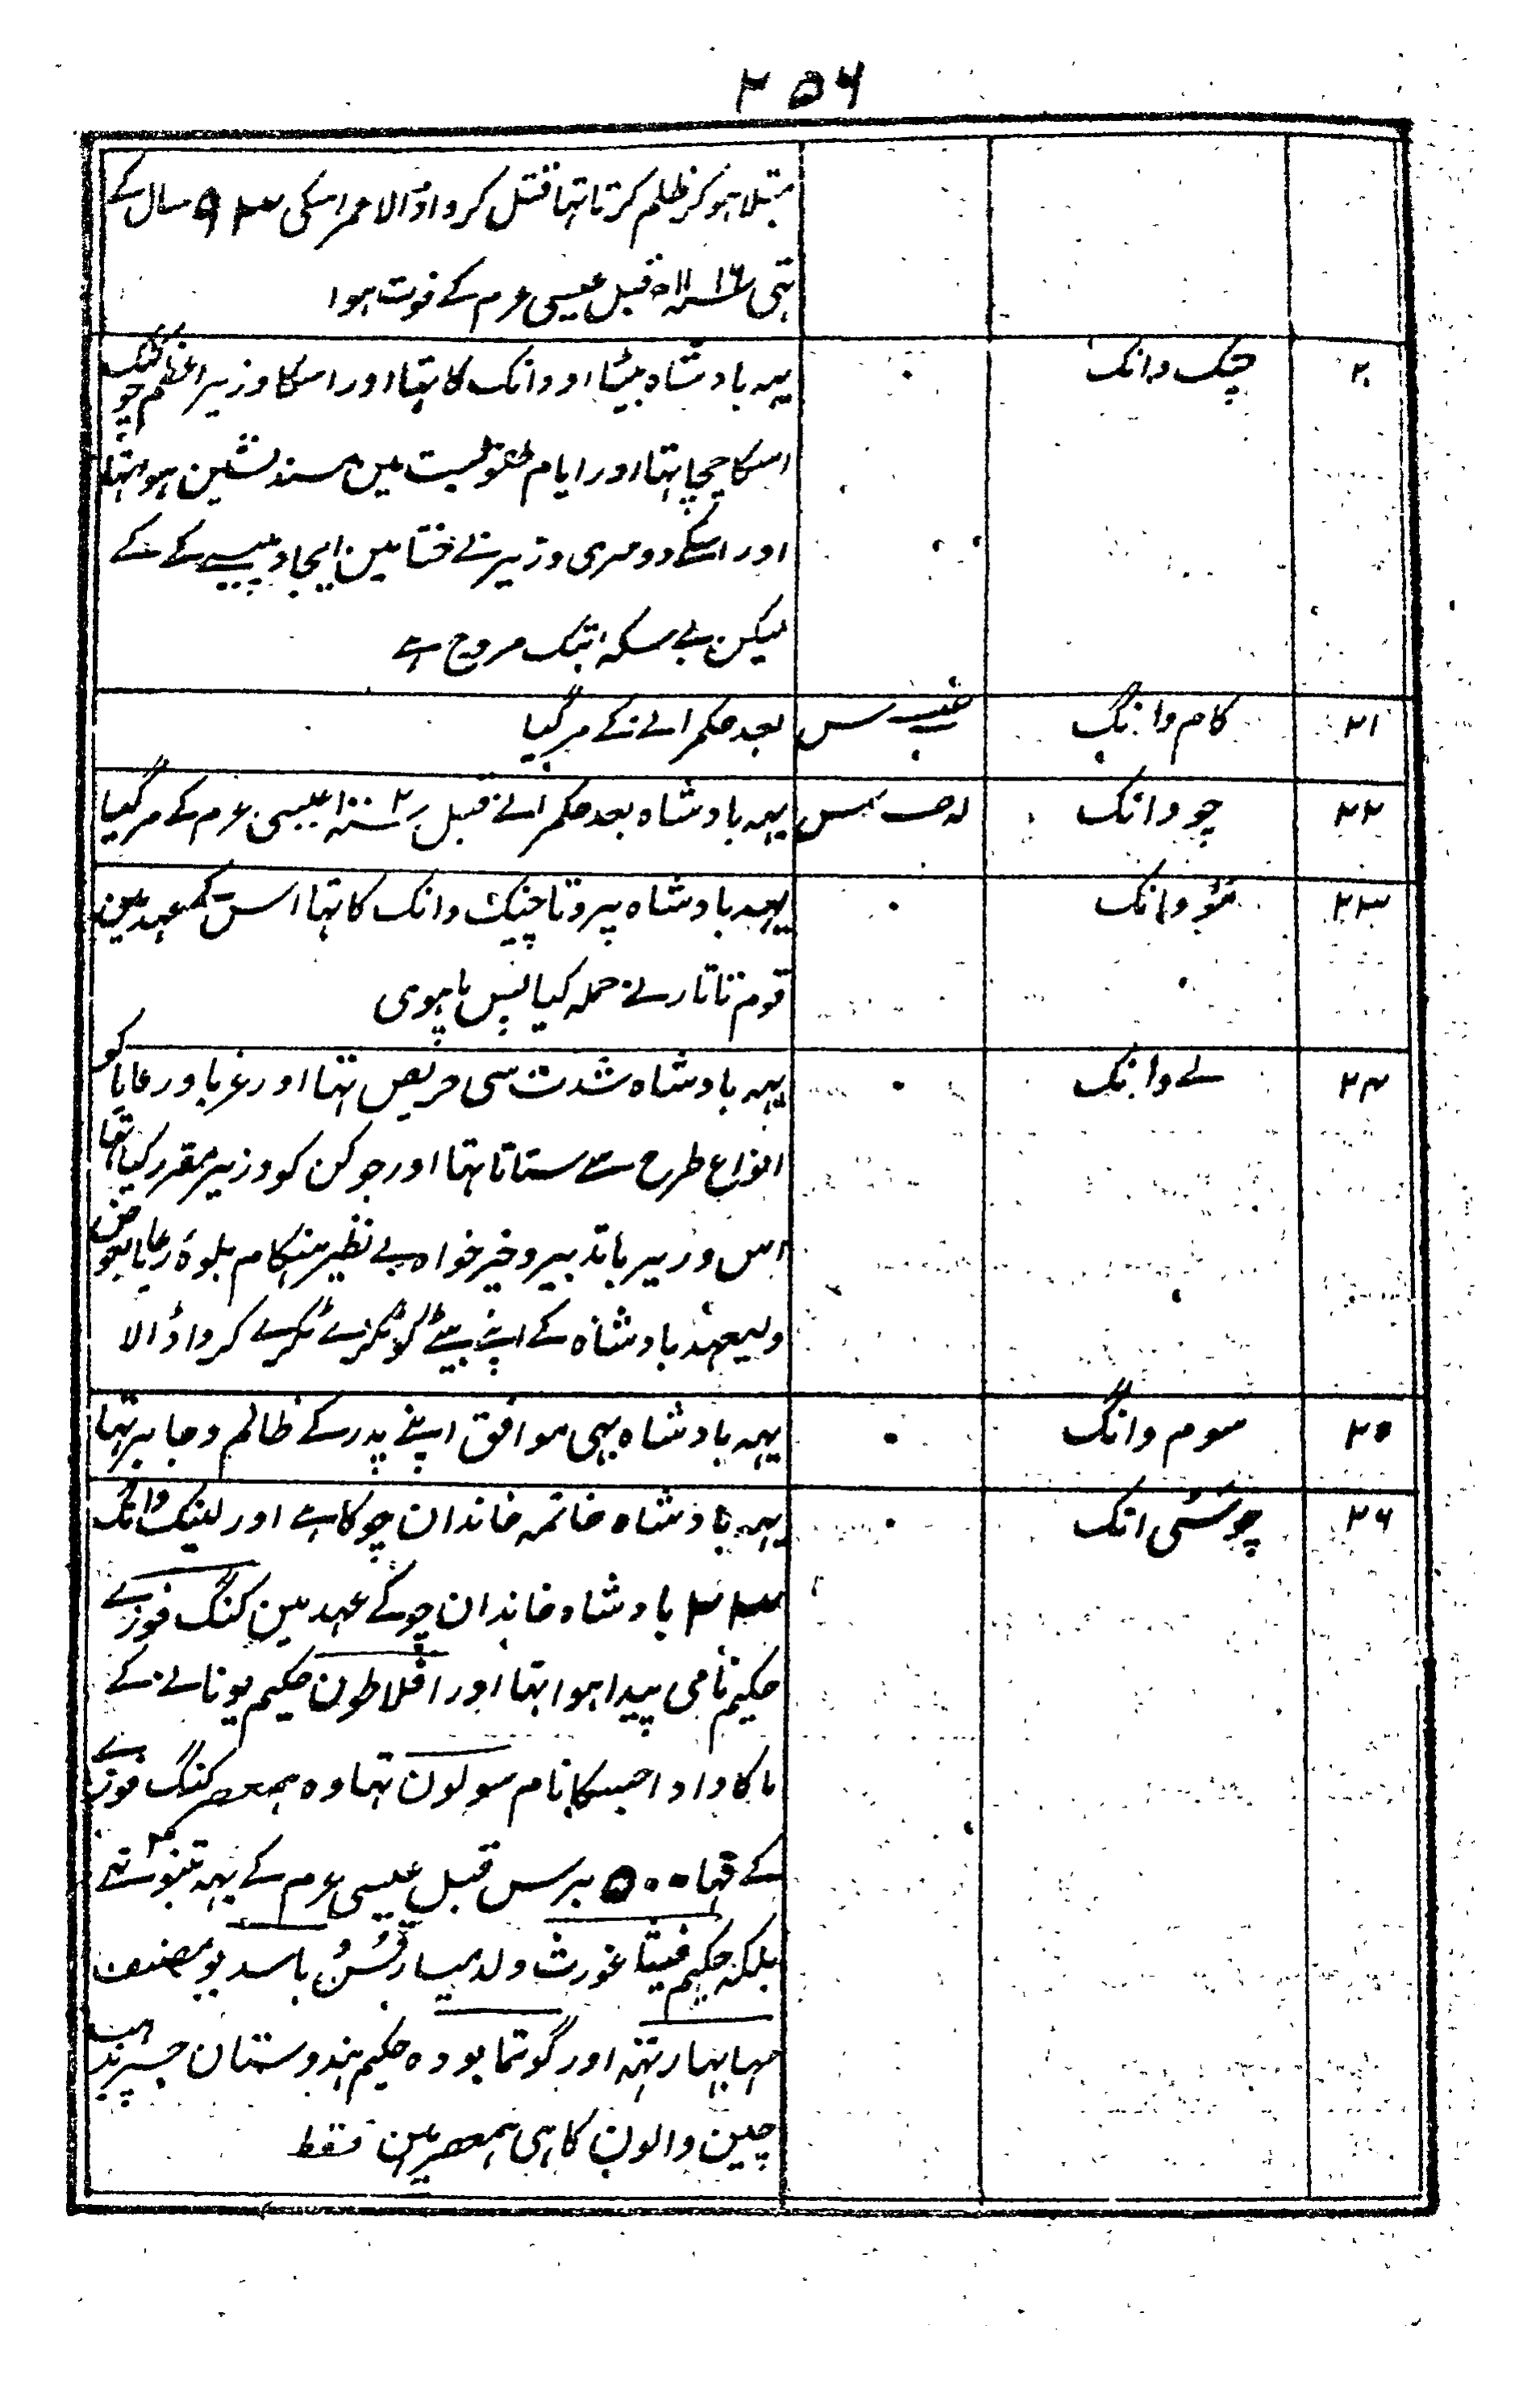 ۲۵۶
مبتلا ہوکر ظلم کرتا تہا قتل کروا ڈالا عمر اسکی ۹۳ سال کے
تہی ۱۱۱۶ قبل عیسی عرم کے فوت ہوا
۲۰ چنک وانک ۰ یہہ بادشاہ بیٹا او وانک کا تہا اور اسکا وزیر اعظم چو کنک
اسکا چچا تہا اور ایام طفولیت مین مسند نشین ہوا تہا
اور اسکے دوسری وزیر نے ختا مین ایجاد پیسے کے کے
لیکن بے سکہ ابتک مروج ہے
۲۱ کام وانگ بعد حکمرانے کے مرگیا
۲۲ چو وانک یہہ بادشاہ بعد حکمرانے قبل ۱۰۰۲ عیسی عرم کے مرگیا
۲۳ مُو وانک ۰ یہہ بادشاہ پروتا چنیک وانک کا تہا اس کے عہد مین
قوم تاتار نے حملہ کیا پس پا ہوی
۲۴ لے وانک ۰ یہہ بادشاہ شدت سی حریص تہا اور غربا و رعایا کو
انواع طرح سے ستاتا تہا اور جو کن کو وزیر مقرر کیا تہا
اس وزیر باتدبیر و خیرخواہ بے نظیر ہنکام بلوۂ رعایا بعوض
ولیعہد بادشاہ کے اپنے بیٹے کو ٹکڑے ٹکڑے کروا ڈالا
۲۵ سوم وانگ ۰ یہہ بادشاہ بہی موافق اپنے پدر کے ظالم و جابر تہا
۲۶ ۰ یہہ بادشاہ خاتمہ خاندان چو کا ہے اور لینک وانگ
۲۳ بادشاہ خاندان چو کے عہد مین کنگ فوزے
حکیم نامی پیدا ہوا تہا اور افلاطون حکیم یونانے کے
ما کا دادا جسکا نام سولون تہا وہ ہمعصر کنگ فوزے
کے تہا ۵۰۰ برس قبل عیسی عرم کے یہہ تینو تہے
بلکہ حکیم فیثاغورث ولد باسدیو مصنف
مہابہارتہہ اور گوتما بودہ حکیم ہندوستان جسپر مذہب
چین والون کا ہی ہمعصر ہین فقط